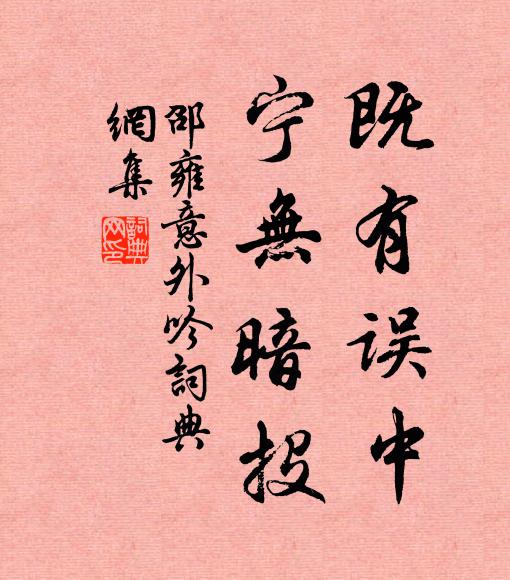 既有误中
宁無暗投
邵雍意外吟詞典
網集
詞典
网印